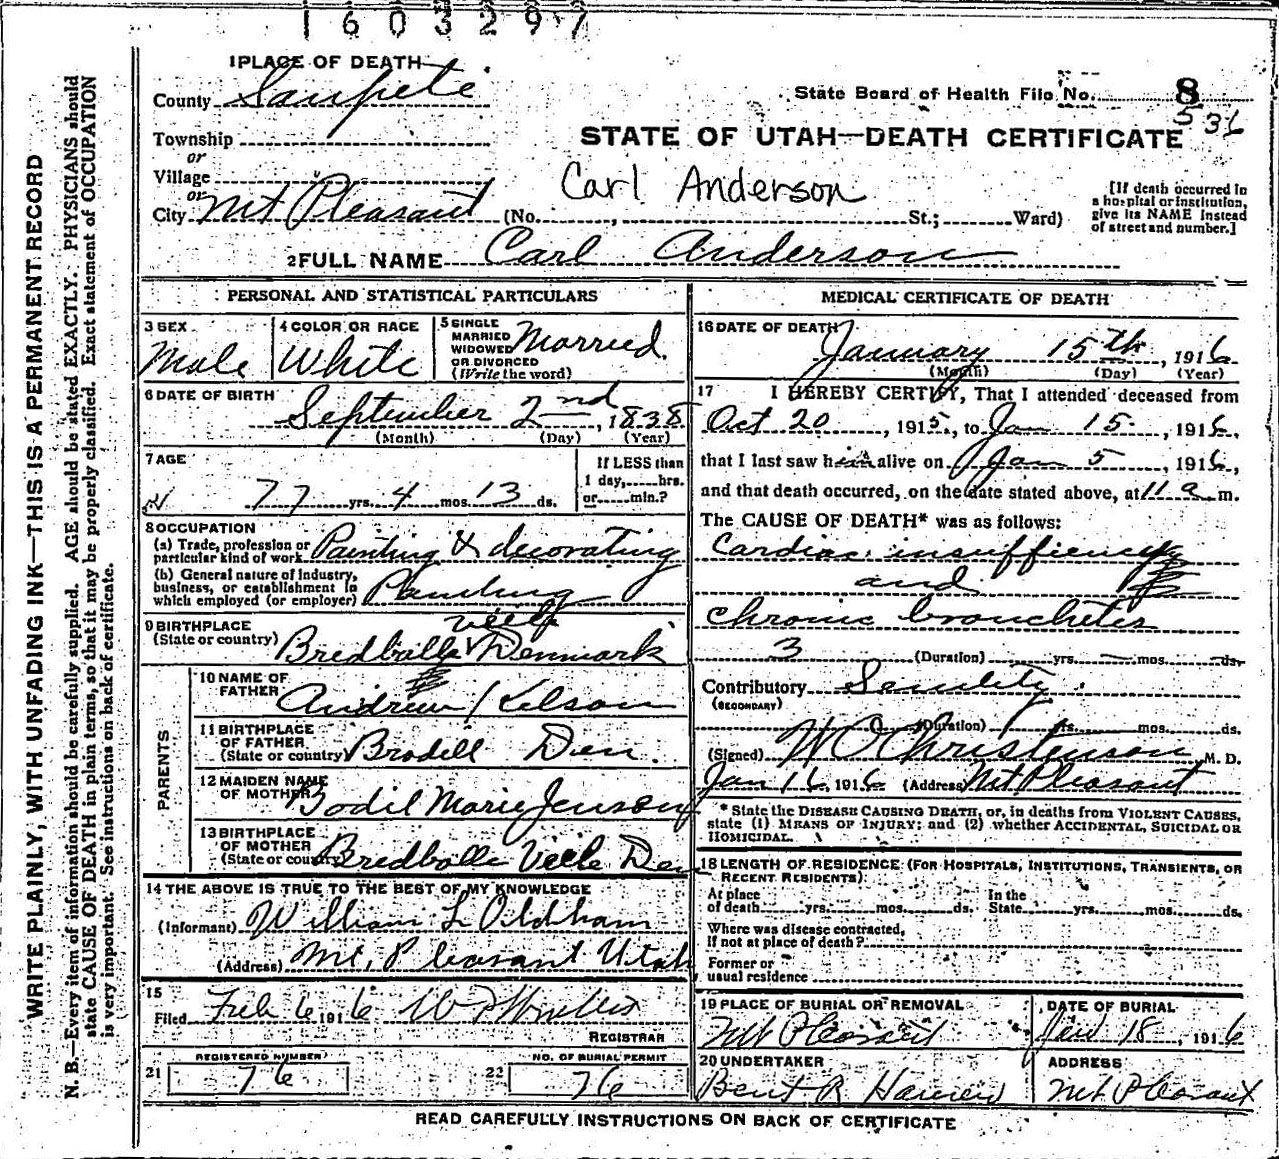 1603297
WRITE PLAINLY, WITH UNFADING INK—THIS IS A PERMANENT RECORD
N. B.—Every item of information should be carefully supplied. AGE should be stated EXACTLY. PHYSICIANS should
state CAUSE OF DEATH in plain terms, so that it may be properly classified. Exact statement of OCCUPATION
is very important. See instructions on back of certificate.
1 PLACE OF DEATH
County Sanpete
Township
or
Village
or
City Mt Pleasant (No. , St.; Ward)
State Board of Health File No. 8
536
STATE OF UTAH—DEATH CERTIFICATE
Carl Anderson
[If death occurred in
a hospital or institution,
give its NAME instead
of street and number.]
2 FULL NAME Carl Anderson
PERSONAL AND STATISTICAL PARTICULARS
3 SEX
Male
4 COLOR OR RACE
White
5 SINGLE
MARRIED
WIDOWED
OR DIVORCED
(Write the word)
Married
6 DATE OF BIRTH
September 2nd, 1838
(Month) (Day) (Year)
7 AGE
77 yrs. 4 mos. 13 ds.
If LESS than
1 day, hrs.
or min.?
8 OCCUPATION
(a) Trade, profession or
particular kind of work Painting & decorating
(b) General nature of industry,
business, or establishment in
which employed (or employer) Painting
9 BIRTHPLACE
(State or country) Bredballe Veile Denmark
PARENTS
10 NAME OF
FATHER
Andrew Kelson
11 BIRTHPLACE
OF FATHER
(State or country) Brodill Den.
12 MAIDEN NAME
OF MOTHER Bodil Marie Jenson
13 BIRTHPLACE
OF MOTHER
(State or country) Bredballe Veele Den
14 THE ABOVE IS TRUE TO THE BEST OF MY KNOWLEDGE
(Informant) William L Oldham
(Address) Mt. Pleasant Utah
15
Filed Feb 6 1916
REGISTRAR
REGISTERED NUMBER
21 76
NO. OF BURIAL PERMIT
22 76
MEDICAL CERTIFICATE OF DEATH
16 DATE OF DEATH
January 15th, 1916
(Month) (Day) (Year)
17 I HEREBY CERTIFY, That I attended deceased from
Oct 20, 1915, to Jan 15, 1916,
that I last saw him alive on Jan 5, 1916,
and that death occurred, on the date stated above, at 11 a m.
The CAUSE OF DEATH* was as follows:
Cardiac insufficiency
and
chronic bronchetes
3 (Duration) yrs. mos. ds.
Contributory Senility.
(SECONDARY)
(Duration) yrs. mos. ds.
(Signed) W O Christenson M. D.
Jan 16, 1916 (Address) Mt Pleasant
* State the DISEASE CAUSING DEATH, or, in deaths from VIOLENT CAUSES,
state (1) MEANS OF INJURY; and (2) whether ACCIDENTAL, SUICIDAL OR
HOMICIDAL.
18 LENGTH OF RESIDENCE (FOR HOSPITALS, INSTITUTIONS, TRANSIENTS, OR
RECENT RESIDENTS)
At place
of death yrs. mos. ds. In the
State yrs. mos. ds.
Where was disease contracted,
if not at place of death?
Former or
usual residence
19 PLACE OF BURIAL OR REMOVAL
Mt Pleasant
DATE OF BURIAL
Jan 18, 1916
20 UNDERTAKER
Bent R Hansen
ADDRESS
Mt Pleasant
READ CAREFULLY INSTRUCTIONS ON BACK OF CERTIFICATE